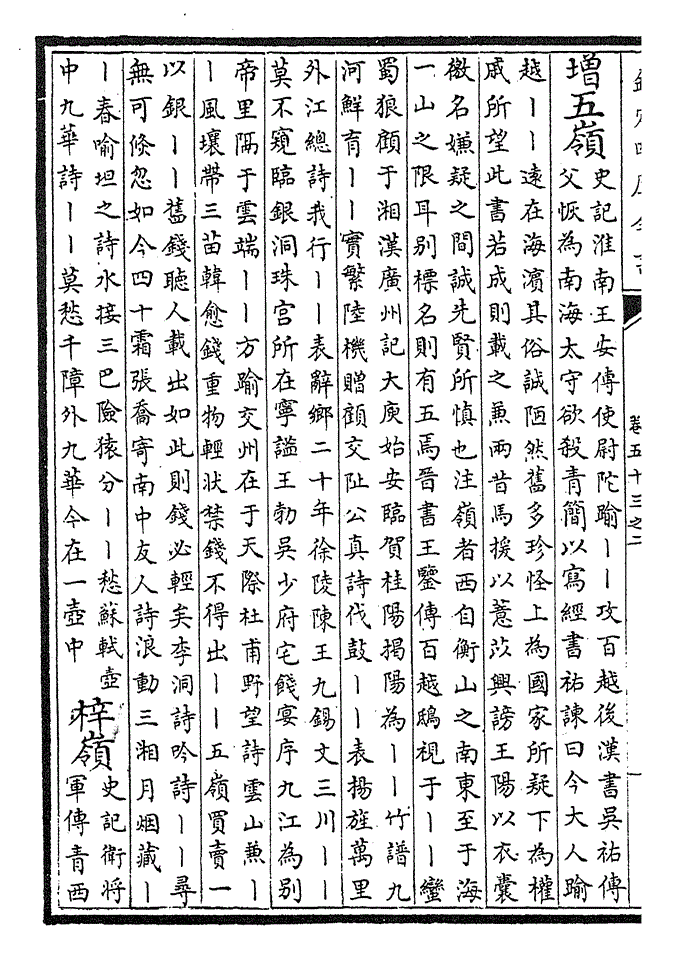 欽定四庫全書
卷五十三之二
一
增五嶺
史記淮南王安傳使尉陀踰丨丨攻百越後漢書吳祐傳
父恢為南海太守欲殺青簡以寫經書祐諫曰今大人踰
越丨丨遠在海濱其俗誠陋然舊多珍怪上為國家所疑下為權
戚所望此書若成則載之兼兩昔馬援以薏苡興謗王陽以衣囊
徼名嫌疑之間誠先賢所慎也注嶺者西自衡山之南東至于海
一山之限耳别標名則有五焉晉書王鑒傳百越鴟視于丨丨蠻
蜀狼顧于湘漢廣州記大庾始安臨賀桂陽揭陽為丨丨竹譜九
河鮮育丨丨實繁陸機贈顧交阯公真詩伐鼓丨丨表揚旌萬里
外江總詩我行丨丨表辭鄉二十年徐陵陳王九錫文三川丨丨
莫不窺臨銀洞珠宫所在寧謐王勃吳少府宅餞宴序九江為别
帝里隔于雲端丨丨方踰交州在于天際杜甫野望詩雲山兼丨
丨風壤帶三苗韓愈錢重物輕狀禁錢不得出丨丨五嶺買賣一
以銀丨丨舊錢聽人載出如此則錢必輕矣李洞詩吟詩丨丨尋
無可倏忽如今四十霜張喬寄南中友人詩浪動三湘月烟藏丨
丨春喻坦之詩水接三巴險猿分丨丨愁蘇軾壺
中九華詩丨丨莫愁千障外九華今在一壺中
梓嶺
史記衛將
軍傳青西